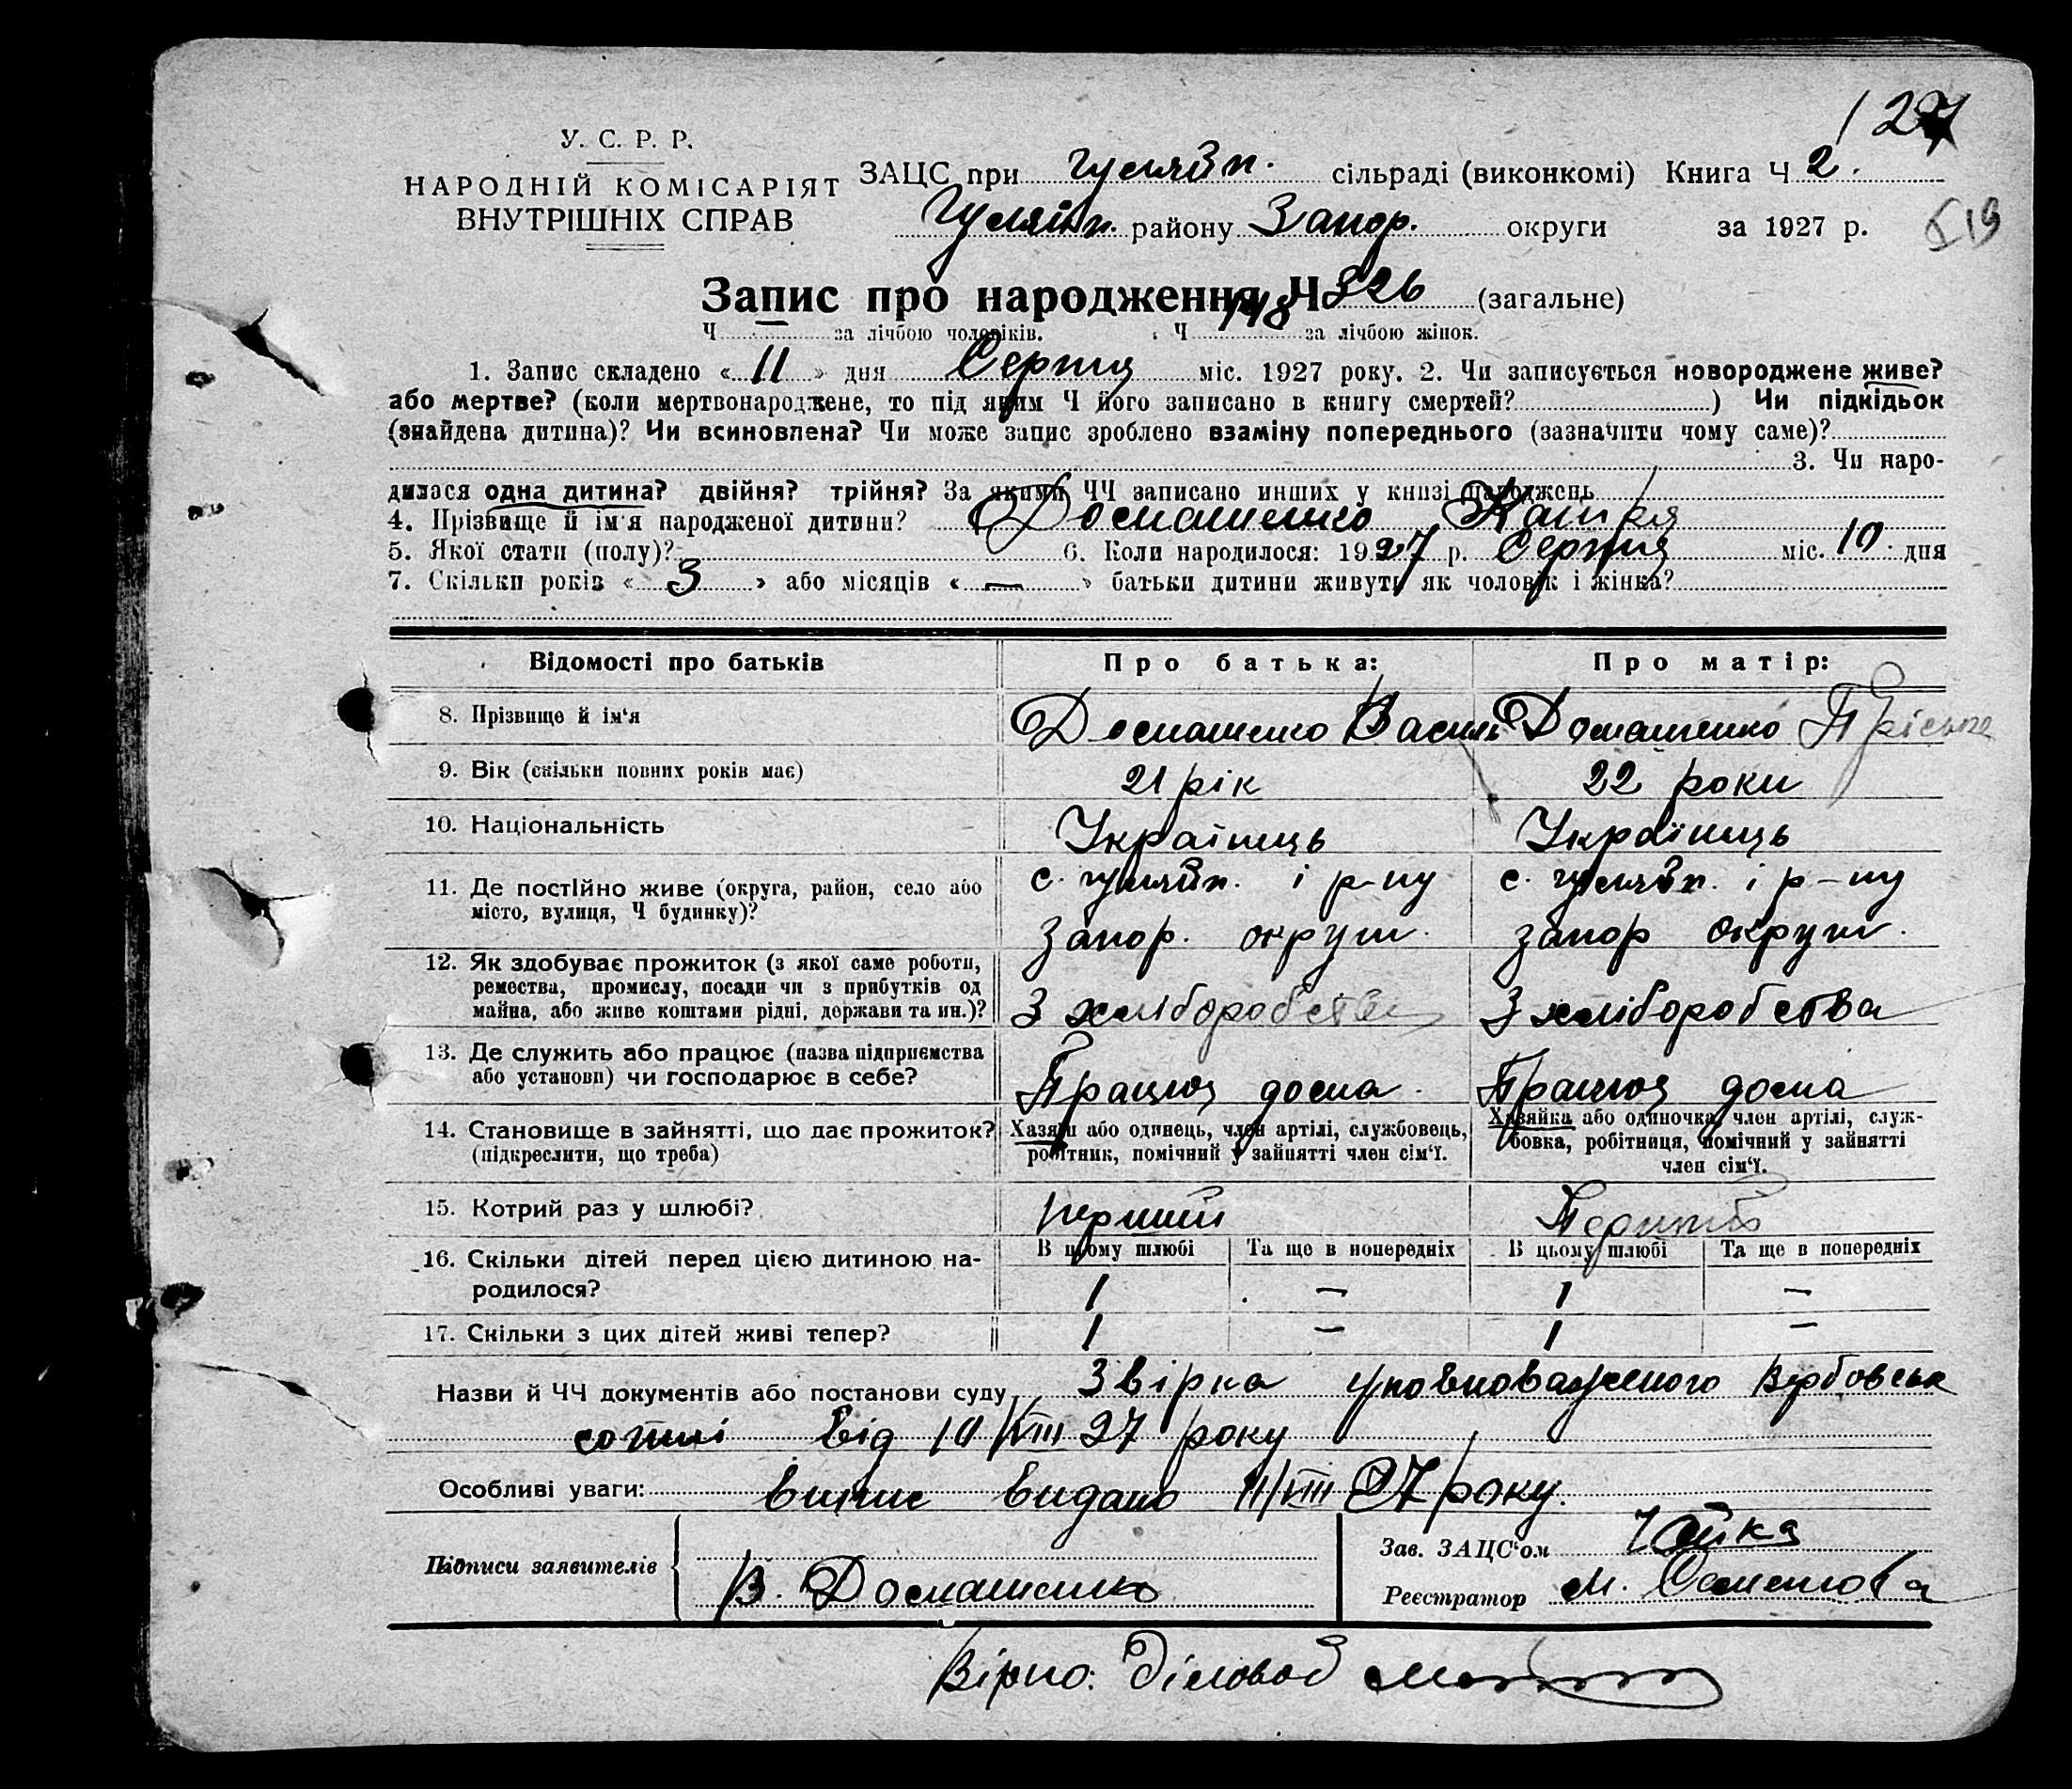 127
У. С. Р. Р.
НАРОДНІЙ КОМІСАРІЯТ
ВНУТРІШНІХ СПРАВ
ЗАЦС при Гуляйп. сільраді (виконкомі) Книга Ч 2.
Гуляйп. району Запор. округи за 1927 р.
Запис про народження Ч 326 (загальне)
Ч — за лічбою чоловіків. Ч 148 за лічбою жінок.
1. Запис складено « 11 » дня Серпня міс. 1927 року. 2. Чи записується новороджене живе?
або мертве? (коли мертвонароджене, то під яким Ч його записано в книгу смертей? ) Чи підкідьок
(знайдена дитина)? Чи всиновлена? Чи може запис зроблено взаміну попереднього (зазначити чому саме)?
3. Чи наро-
дилася одна дитина? двійня? трійня? За якими ЧЧ записано инших у книзі народжень
4. Прізвище й ім'я народженої дитини? Домашенко Катря
5. Якої стати (полу)? 6. Коли народилося: 1927 р. Серпня міс. 10 дня
7. Скільки років « 3 » або місяців « — » батьки дитини живуть як чоловік і жінка?
Відомості про батьків Про батька: Про матір:
8. Прізвище й ім'я Домашенко Василь Домашенко Пріська
9. Вік (скільки повних років має) 21 рік 22 роки
10. Національність Українець Українець
11. Де постійно живе (округа, район, село або
місто, вулиця, Ч будинку)?
с. Гуляйп. і р-ну с. Гуляйп. і р-ну
Запор. округи. Запор округи.
12. Як здобуває прожиток (з якої саме роботи,
ремества, промислу, посади чи з прибутків од
майна, або живе коштами рідні, держави та ин.)?
З хліборобства З хліборобства
13. Де служить або працює (назва підприємства
або установи) чи господарює в себе?
Працює дома Працює дома
14. Становище в зайнятті, що дає прожиток?
(підкреслити, що треба)
Хазяїн або одинець, член артілі, службовець,
робітник, помічний у зайнятті член сім'ї.
Хазяйка або одиночка, член артілі, служ-
бовка, робітниця, помічний у зайнятті
член сім'ї.
15. Котрий раз у шлюбі? перший Перший
16. Скільки дітей перед цією дитиною на-
родилося?
В цьому шлюбі Та ще в попередніх В цьому шлюбі Та ще в попередніх
1 — 1 —
17. Скільки з цих дітей живі тепер? 1 — 1 —
Назви й ЧЧ документів або постанови суду Звірка уповноваженого Вербовськ
сотні від 10/VIII 27 року
Особливі уваги: витяг видано 11/VIII 27 року.
Підписи заявителів В. Домашенко
Зав. ЗАЦС'ом Чайка
Реєстратор М.
Вірно: Діловод